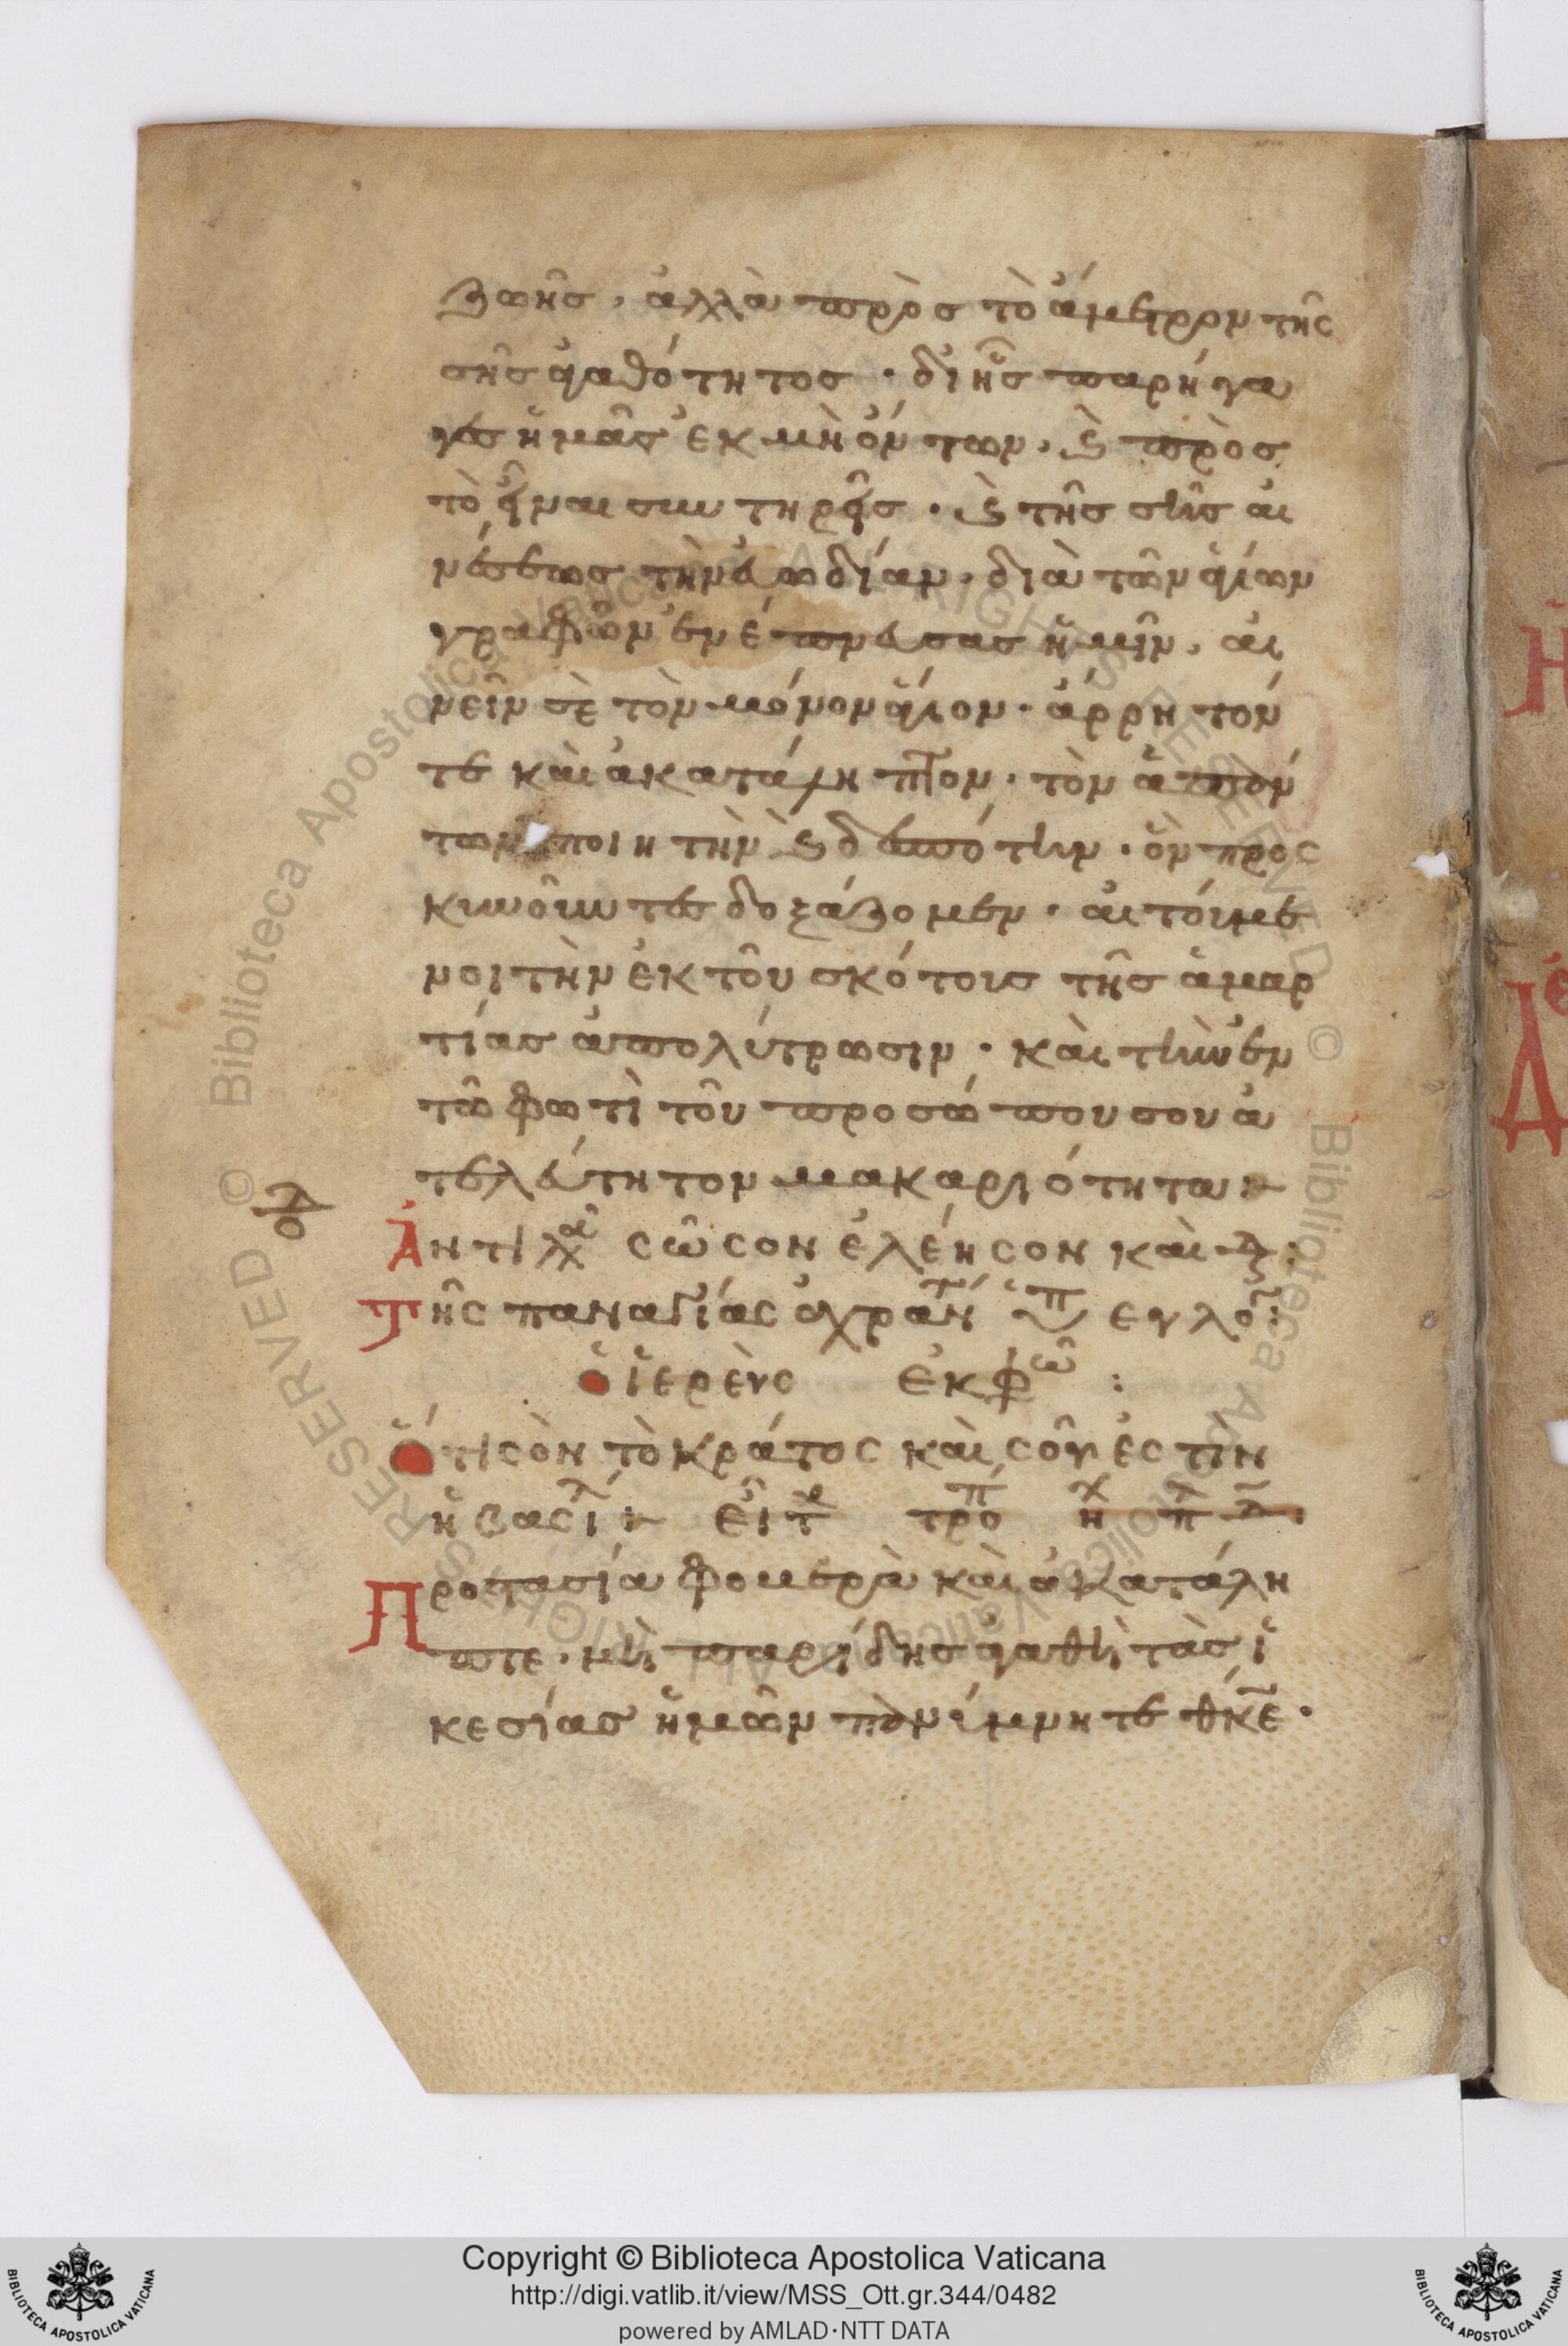 ζωῆς· ἀλλὰ πρὸς τὸ ἄμετρον τῆς
σῆς ἀγαθότητος· δι' ἧς παρήγα
γες ἡμᾶς ἐκ μὴ ὄντων· ϗ πρὸς
τὸ εἶναι συντηρεῖς· ϗ τῆς σῆς αἰ
νέσεως τὴν εὐωδίαν· διὰ τῶν ἁγίων
γραφῶν ἐνέπνευσας ἡμῖν· αἰ
νεῖν σὲ τὸν μόνον ἅγιον· ἄρρητόν
τε καὶ ἀκατάληπτον· τὸν ἁπάν
των ποιητὴν ϗ δεσπότην· ὃν προς
κυνοῦντες δοξάζομεν· αἰτούμε
νοι τὴν ἐκ τοῦ σκότους τῆς ἁμαρ
τίας ἀπολύτρωσιν· καὶ τὴν ἐν
τῶ φωτὶ τοῦ προσώπου σου ἀ
τελεύτητον μακαριότητα
Ἀντιλα σῶσον ἐλέησον καὶ δ:
Τῆς παναγίας ἀχράν ὑπ ευλο:
ὁ ἱερεὺς ἐκφω:
Ὅτι σὸν τὸ κράτος καὶ σοῦ ἐστὶν
ἡ βασιλ εἶτ τροπ
Προστασία φοβερὰ καὶ ἀκατάλη
πτε· μὴ παρίδης ἀγαθὴ τὰς ἱ
κεσίας ἡμῶν πανύμνητε θκε·
Copyright © Biblioteca Apostolica Vaticana
http://digi.vatlib.it/view/MSS_Ott.gr.344/0482
powered by AMLAD·NTT DATA
BIBLIOTECA APOSTOLICA VATICANA
BIBLIOTECA APOSTOLICA VATICANA